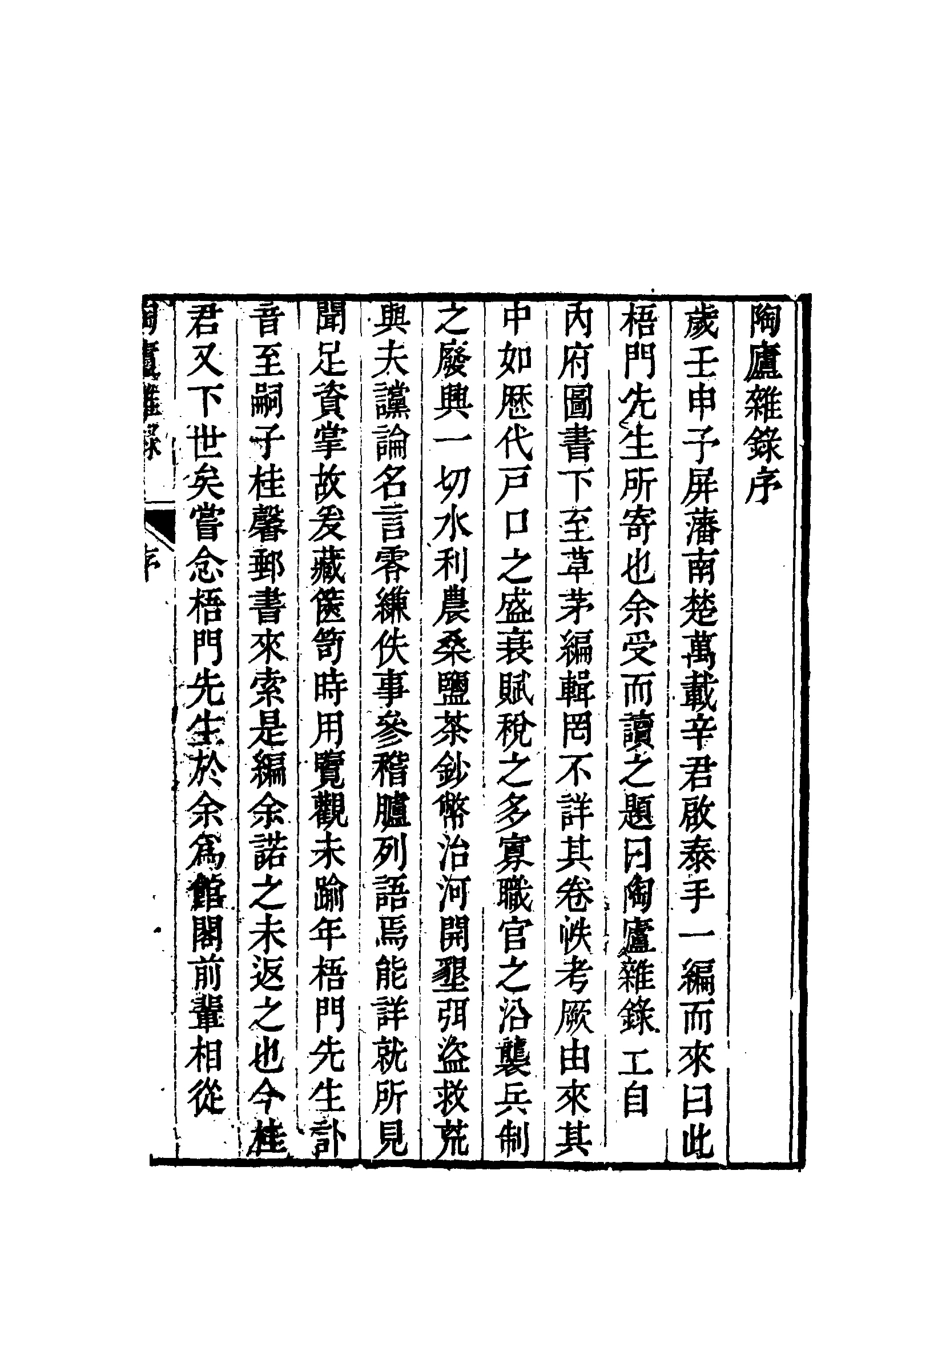 陶廬雜錄序
歲壬申子屏藩南楚萬載辛君啟泰手一編而來曰此
梧門先生所寄也余受而讀之題曰陶廬雜錄工自
內府圖書下至草茅編輯罔不詳其卷帙考厥由來其
中如歷代戸口之盛衰賦稅之多寡職官之沿襲兵制
之廢興一切水利農桑鹽茶鈔幣治河開墾弭盜救荒
與夫讜論名言零縑佚事參稽臚列語焉能詳就所見
聞足資掌故爰藏篋笥時用覽觀未踰年梧門先生訃
音至嗣子桂馨郵書來索是編余諾之未返之也今桂
君又下世矣嘗念梧門先生於余爲館閣前輩相從
陶廬雜錄
序